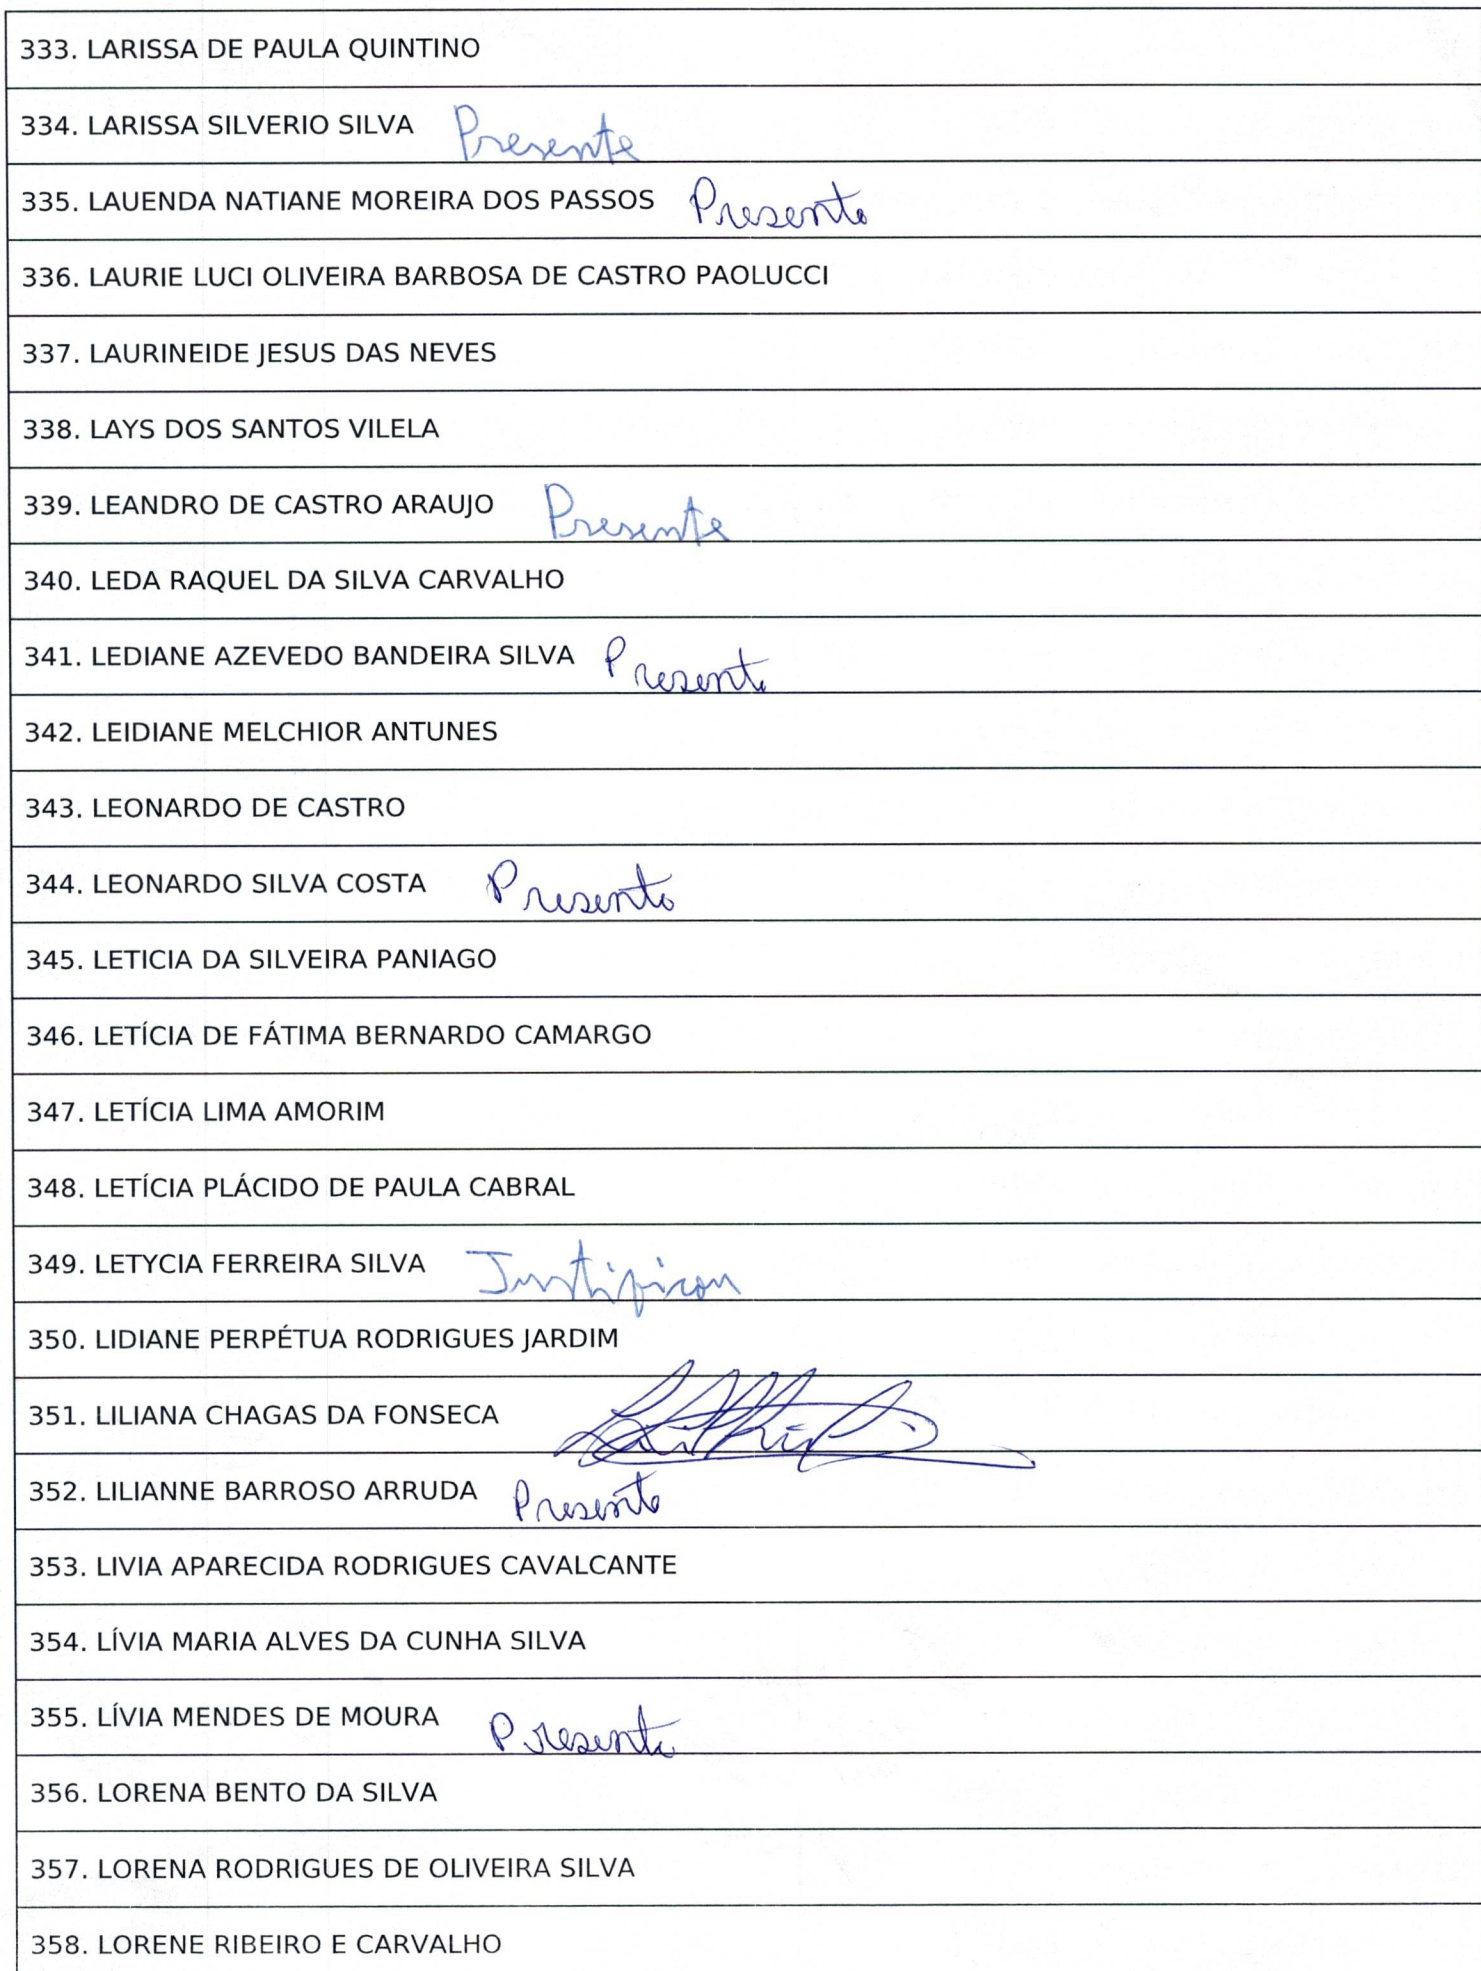 333. LARISSA DE PAULA QUINTINO
334. LARISSA SILVERIO SILVA Presente
335. LAUENDA NATIANE MOREIRA DOS PASSOS Presente
336. LAURIE LUCI OLIVEIRA BARBOSA DE CASTRO PAOLUCCI
337. LAURINEIDE JESUS DAS NEVES
338. LAYS DOS SANTOS VILELA
339. LEANDRO DE CASTRO ARAUJO Presente
340. LEDA RAQUEL DA SILVA CARVALHO
341. LEDIANE AZEVEDO BANDEIRA SILVA Presente
342. LEIDIANE MELCHIOR ANTUNES
343. LEONARDO DE CASTRO
344. LEONARDO SILVA COSTA Presente
345. LETICIA DA SILVEIRA PANIAGO
346. LETÍCIA DE FÁTIMA BERNARDO CAMARGO
347. LETÍCIA LIMA AMORIM
348. LETÍCIA PLÁCIDO DE PAULA CABRAL
349. LETYCIA FERREIRA SILVA Justificou
350. LIDIANE PERPÉTUA RODRIGUES JARDIM
351. LILIANA CHAGAS DA FONSECA
352. LILIANNE BARROSO ARRUDA Presente
353. LIVIA APARECIDA RODRIGUES CAVALCANTE
354. LÍVIA MARIA ALVES DA CUNHA SILVA
355. LÍVIA MENDES DE MOURA Presente
356. LORENA BENTO DA SILVA
357. LORENA RODRIGUES DE OLIVEIRA SILVA
358. LORENE RIBEIRO E CARVALHO